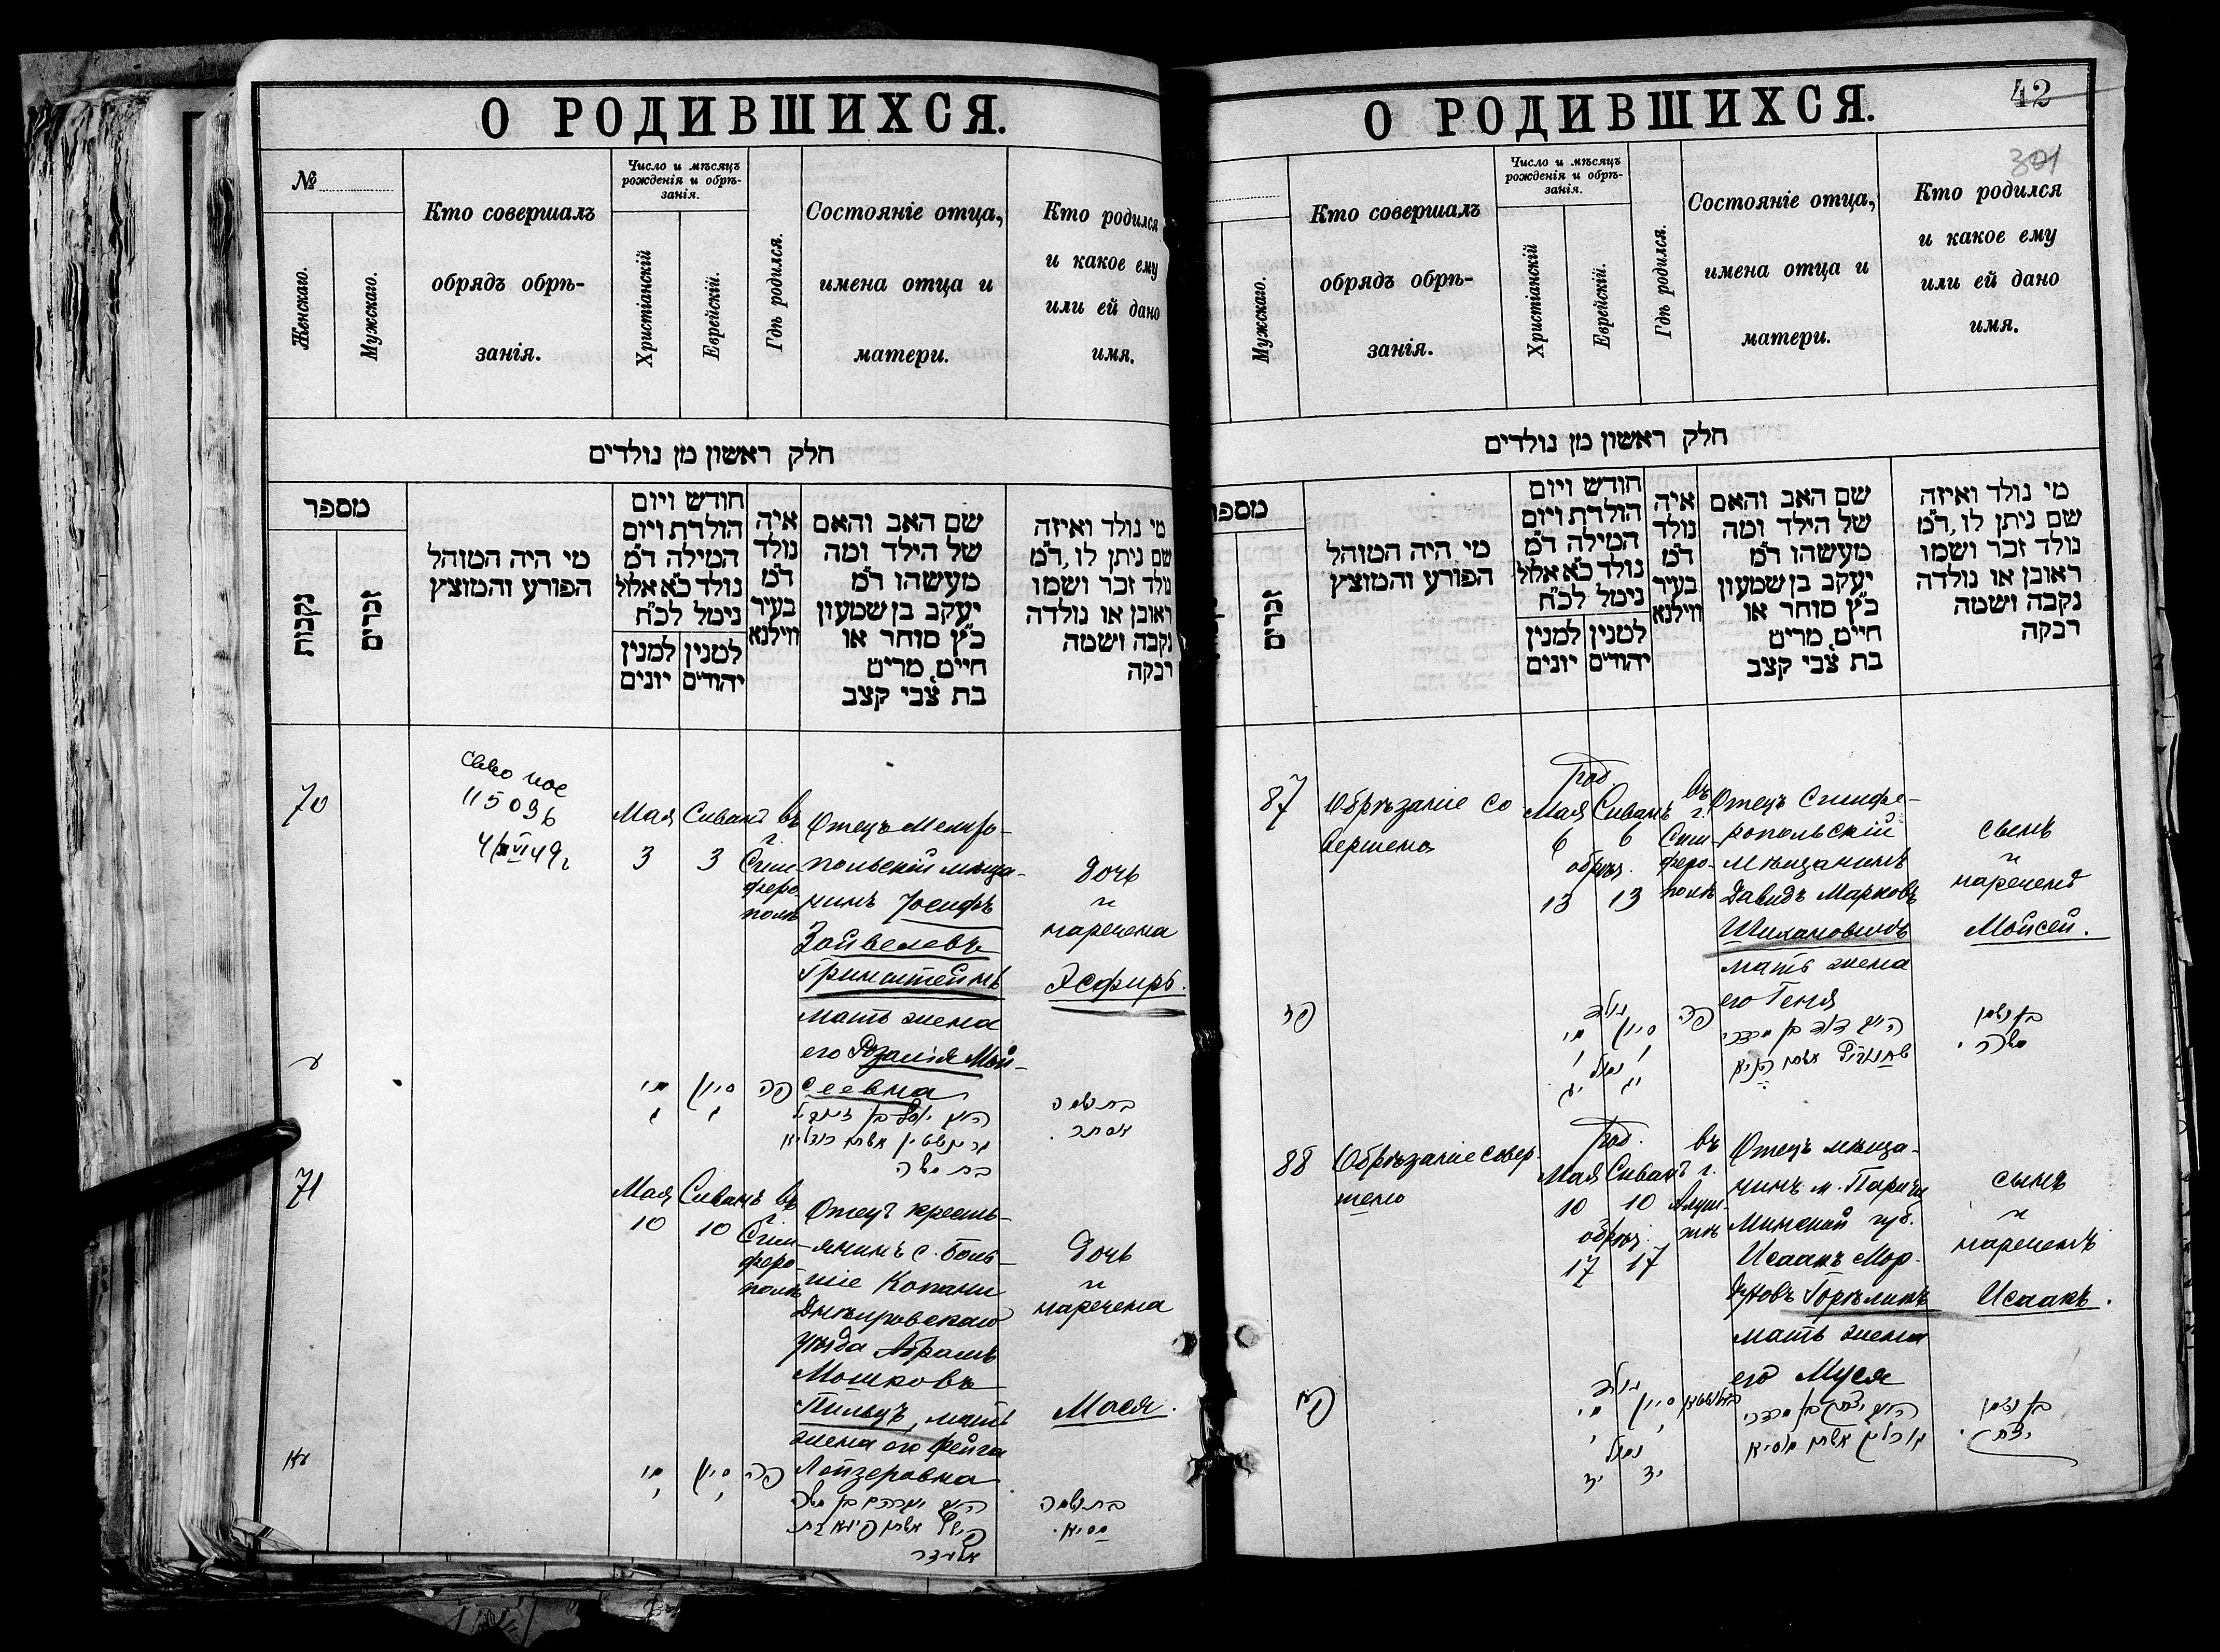 О РОДИВШИХСЯ.
№
Женскаго.
Мужскаго.
Кто совершалъ
обрядъ обрѣ-
занія.
Число и мѣсяцъ
рожденія и обрѣ-
занія.
Христіанскій
Еврейскій.
Гдѣ родился.
Состояніе отца,
имена отца и
матери.
Кто родился
и какое ему
или ей дано
имя.
חלק ראשון מן נולדים
מספר
נקבות
זכרים
מי היה המוהל
הפורע והמוצץ
חודש ויום
הולדת ויום
המילה ד״מ
נולד כ״א אלול
נימל לכ״ח
למנין
יונים
למנין
יהודים
איה
נולד
ד״מ
בעיר
ווילנא
שם האב והאם
של הילד ומה
מעשהו ד״מ
יעקב בן שמעון
כ״ץ סוחר או
חיים, מרים
בת צבי קצב
מי נולד ואיזה
שם ניתן לו, ד״מ
נולד זכר ושמו
ראובן או נולדה
נקבה ושמה
רבקה
70
115096
Мая
3
Сиванъ
3
въ
г.
Сим-
феро
полѣ
Отецъ Мелито-
польскій мѣща-
нинъ Іосифъ
Зайвелевъ
Гринштейнъ
мать жена
его Розалія Мой-
сеевна
дочь
и
наречена
Эсфирь.
ע
מיי
ג
סיון
ג
פה
היא יוסף בן זיוויל
גרינשטיין אשתו רוזליא
בת משה
בת ושמה
אסתר.
71
Мая
10
Сиванъ
10
въ
г.
Сим-
феро-
полѣ
Отецъ кресть-
янинъ с. Боль-
шіе Копани
Днѣпровскаго
уѣзда Абрамъ
Мошковъ
Пильцъ, мать
жена его Фейга
Лейзеровна
дочь
и
наречена
Мася.
עא
מיי
י
סיון
י
פה
בת ושמה
מסיא.
О РОДИВШИХСЯ.
42
301
Мужскаго.
Кто совершалъ
обрядъ обрѣ-
занія.
Число и мѣсяцъ
рожденія и обрѣ-
занія.
Христіанскій
Еврейскій.
Гдѣ родился.
Состояніе отца,
имена отца и
матери.
Кто родился
и какое ему
или ей дано
имя.
חלק ראשון מן נולדים
זכרים
מי היה המוהל
הפורע והמוצץ
חודש ויום
הולדת ויום
המילה ד״מ
נולד כ״א אלול
נימל לכ״ח
למנין
יונים
למנין
יהודים
איה
נולד
ד״מ
בעיר
ווילנא
שם האב והאם
של הילד ומה
מעשהו ד״מ
יעקב בן שמעון
כ״ץ סוחר או
חיים, מרים
בת צבי קצב
מי נולד ואיזה
שם ניתן לו, ד״מ
נולד זכר ושמו
ראובן או נולדה
נקבה ושמה
רבקה
87
Обрѣзаніе со
вершено
род.
Мая Сиванъ
6 6
обрѣз.
13 13
въ
г.
Сим-
феро-
полѣ
Отецъ Симфе-
ропольскій
мѣщанинъ
Давидъ Марковъ
Шихановичъ
мать жена
его Геня
сынъ
и
нареченъ
Мойсей.
פז
נולד
מיי סיון
ו ו
נימול
יג יג
פה
בן ושמו
משה.
88
Обрѣзаніе совер-
шено
род.
Мая Сиванъ
10 10
обрѣз.
17 17
въ
г.
Алуш-
тѣ
Отецъ мѣща-
нинъ м. Паричи
Минской губ.
Исаакъ Мор-
духовъ Горѣликъ
мать жена
его Муся
сынъ
и
нареченъ
Исаакъ.
פח
נולד
מיי סיון
י י
נימול
יז יז
באלושטא
בן ושמו
יצחק.